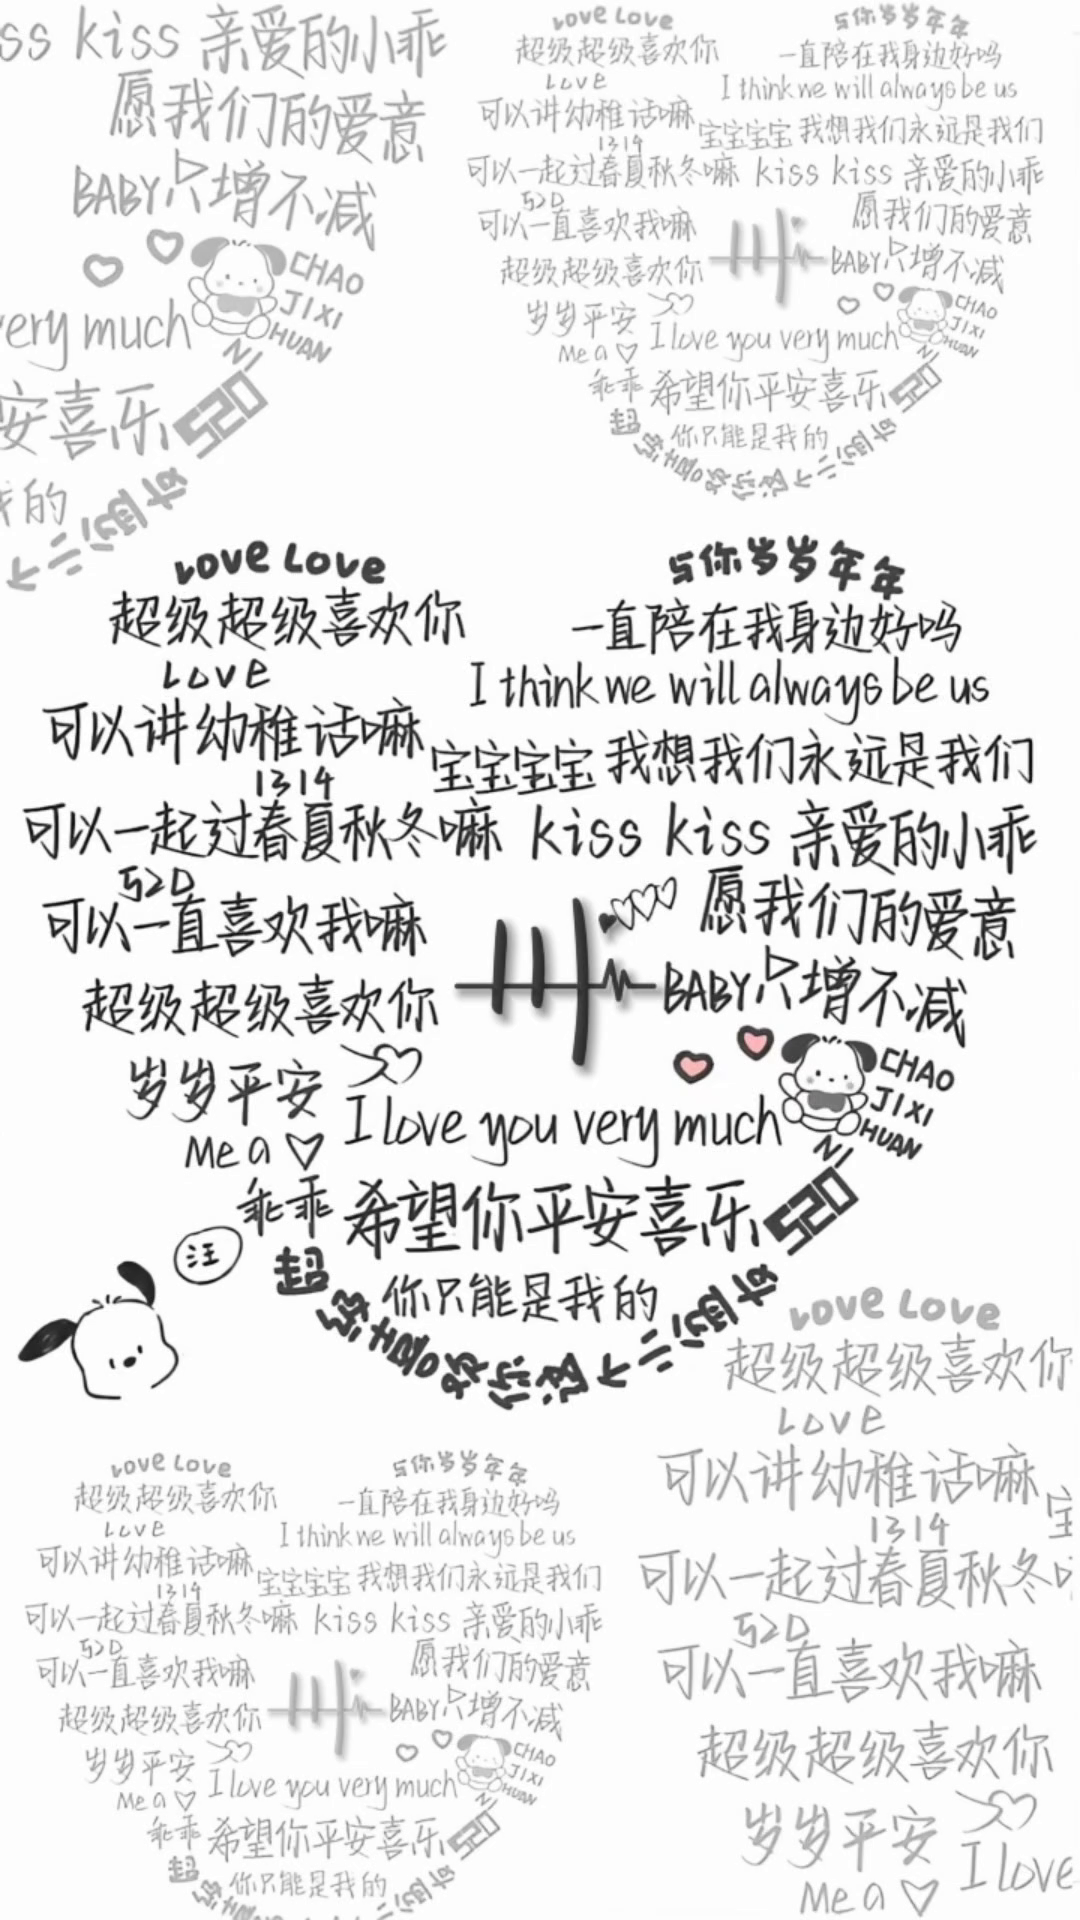 ss kiss 亲爱的小乖
愿我们的爱意
BABY只增不减
CHAO
JIXI
HUAN
NI
very much
安喜乐 520
我的
个二消的
Love Love
与你岁岁年年
超级超级喜欢你
一直陪在我身边好吗
Love
I think we will always be us
可以讲幼稚话嘛
宝宝宝宝 我想我们永远是我们
1314
可以一起过春夏秋冬嘛 kiss kiss 亲爱的小乖
520
愿我们的爱意
可以一直喜欢我嘛
BABY只增不减
超级超级喜欢你
CHAO
JIXI
HUAN
NI
岁岁平安
I love you very much
Me a
乖乖 希望你平安喜乐 520
你只能是我的
Love Love
与你岁岁年年
超级超级喜欢你
一直陪在我身边好吗
Love
I think we will always be us
可以讲幼稚话嘛
宝宝宝宝 我想我们永远是我们
1314
可以一起过春夏秋冬嘛 kiss kiss 亲爱的小乖
520
愿我们的爱意
可以一直喜欢我嘛
BABY只增不减
超级超级喜欢你
CHAO
JIXI
HUAN
NI
岁岁平安
I love you very much
Me a
乖乖 希望你平安喜乐 520
汪
你只能是我的
超级喜欢你这个
Love Love
超级超级喜欢你
Love
可以讲幼稚话嘛
宝
1314
可以一起过春夏秋冬
520
可以一直喜欢我嘛
超级超级喜欢你
岁岁平安
I love
Me a
Love Love
与你岁岁年年
超级超级喜欢你
一直陪在我身边好吗
Love
I think we will always be us
可以讲幼稚话嘛
宝宝宝宝 我想我们永远是我们
1314
可以一起过春夏秋冬嘛 kiss kiss 亲爱的小乖
520
愿我们的爱意
可以一直喜欢我嘛
BABY只增不减
超级超级喜欢你
CHAO
JIXI
HUAN
NI
岁岁平安
I love you very much
Me a
乖乖 希望你平安喜乐 520
你只能是我的